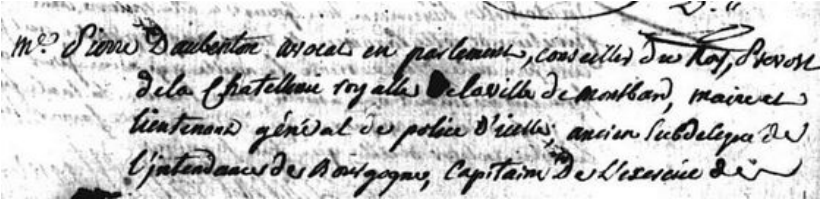 Me. Pierre Daubenton avocat en parlement, conseiller du Roy, Prevost
de la Chatellenie royalle de la ville de Montbard, maire et
lieutenant général de police d'icelle, ancien subdelegué de
l'intendance de Bourgogne, Capitaine De L'exercice de